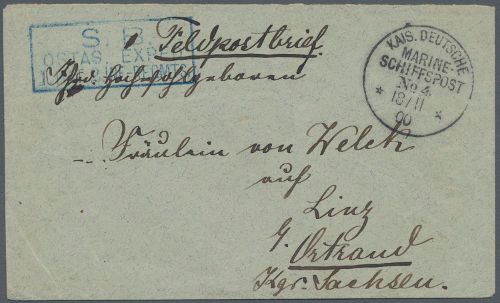 S B
OSTAS. EXPED
Feldpostbrief.
Ihro hochwohlgeboren
Fräulein von Welck
auf
Linz
Ortrand
Kgr. Sachsen.
KAIS. DEUTSCHE
MARINE-
SCHIFFSPOST
No 4.
18/11
00